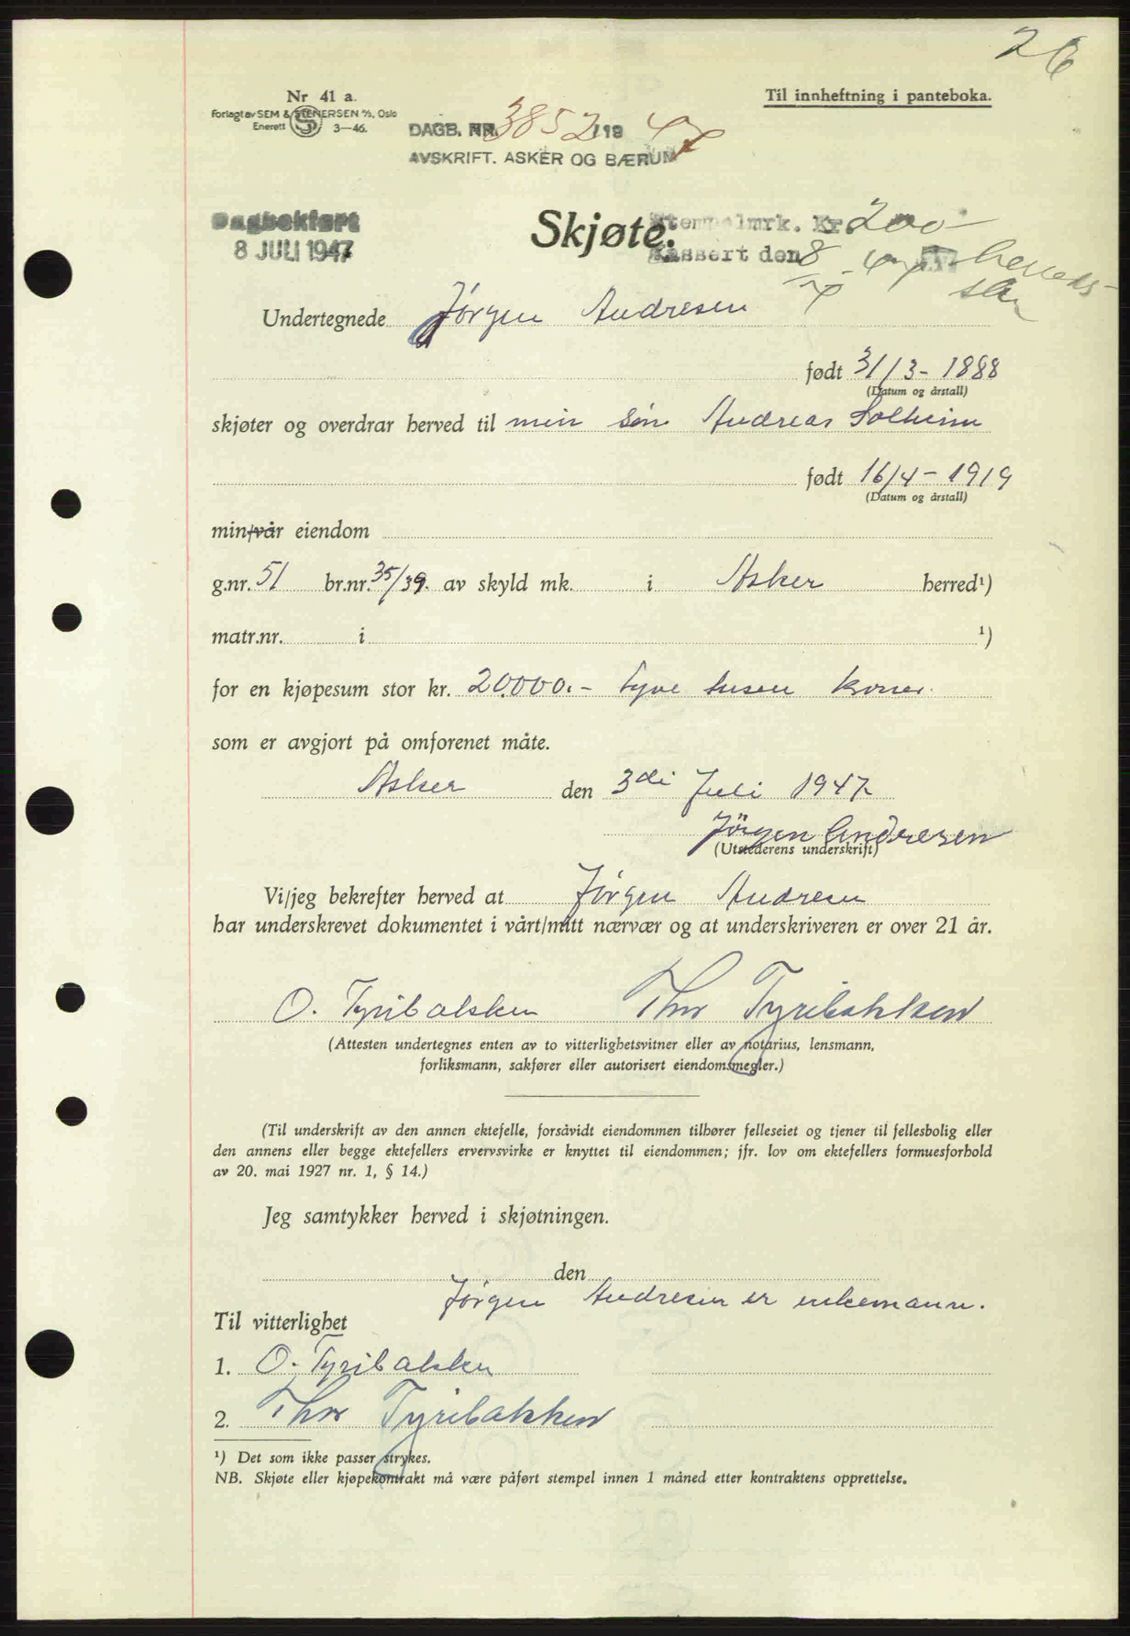 26
Nr 41 a.
Til innheftning i panteboka.
Forlagt av SEM & STENERSEN A/S, Oslo
Enerett 3—46.
DAGB. NR. 3852/19 47
AVSKRIFT. ASKER OG BÆRUM
Dagbokført
8 JULI 1947
Skjøte.
Stempelmrk. Kr. 200-
Kassert den 8/7-47
Undertegnede Jørgen Andresen
født 31/3-1888
(Datum og årstall)
skjøter og overdrar herved til min søn Andreas Solheim
født 16/4-1919
(Datum og årstall)
min/vår eiendom
g.nr. 51 br.nr. 35/39. av skyld mk. i Asker herred¹)
matr.nr. i ¹)
for en kjøpesum stor kr. 20.000.- tyve tusen kroner.
som er avgjort på omforenet måte.
Asker den 3di Juli 1947
Jörgen Andresen
(Utstederens underskrift)
Vi/jeg bekrefter herved at Jørgen Andresen
har underskrevet dokumentet i vårt/mitt nærvær og at underskriveren er over 21 år.
O. Tyribakken Thor Tyribakken
(Attesten undertegnes enten av to vitterlighetsvitner eller av notarius, lensmann,
forliksmann, sakfører eller autorisert eiendomsmegler.)
(Til underskrift av den annen ektefelle, forsåvidt eiendommen tilhører felleseiet og tjener til fellesbolig eller
den annens eller begge ektefellers ervervsvirke er knyttet til eiendommen; jfr. lov om ektefellers formuesforhold
av 20. mai 1927 nr. 1, § 14.)
Jeg samtykker herved i skjøtningen.
den
Jørgen Andresen er enkemann.
Til vitterlighet
1. O. Tyribakken
2. Thor Tyribakken
¹) Det som ikke passer strykes.
NB. Skjøte eller kjøpekontrakt må være påført stempel innen 1 måned etter kontraktens opprettelse.